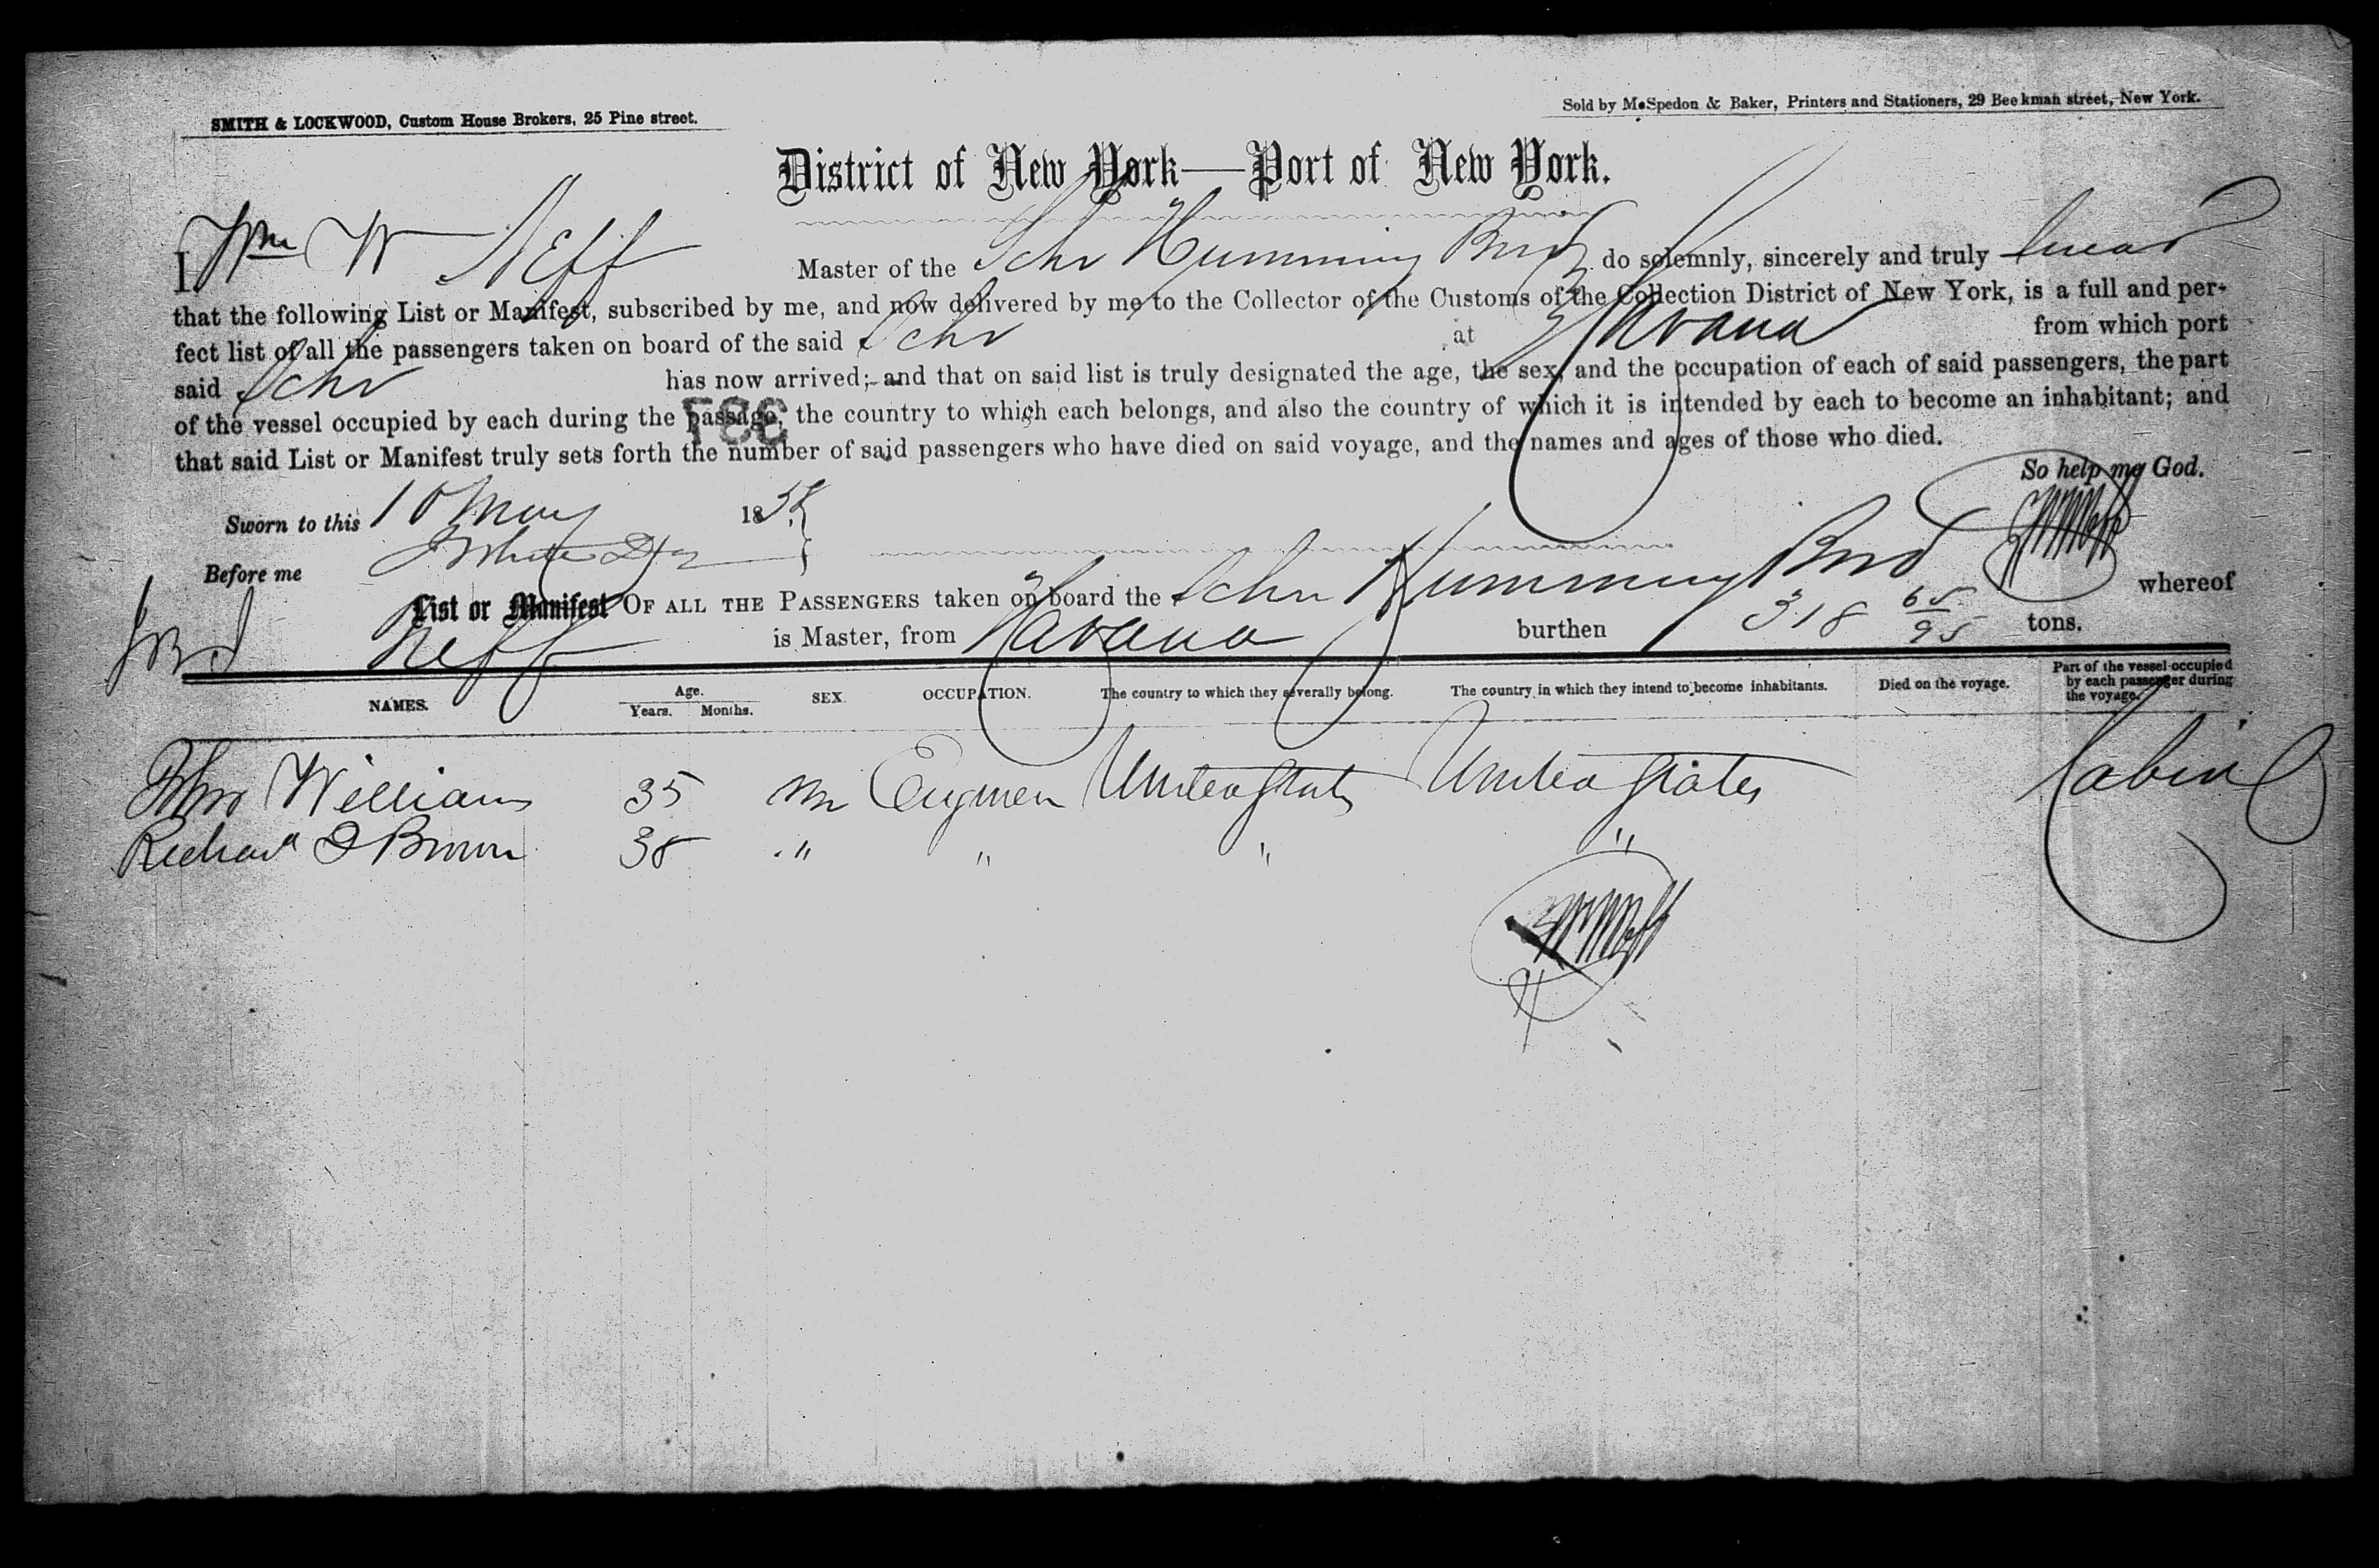 SMITH & LOCKWOOD, Custom House Brokers, 25 Pine street.
Sold by McSpedon & Baker, Printers and Stationers, 29 Beekman street, New York.
District of New York—Port of New York.
I Wm W Neff Master of the Schr Humming Bird do solemnly, sincerely and truly swear
that the following List or Manifest, subscribed by me, and now delivered by me to the Collector of the Customs of the Collection District of New York, is a full and per-
fect list of all the passengers taken on board of the said Schr at Havana from which port
said Schr has now arrived; and that on said list is truly designated the age, the sex, and the occupation of each of said passengers, the part
of the vessel occupied by each during the passage, the country to which each belongs, and also the country of which it is intended by each to become an inhabitant; and
that said List or Manifest truly sets forth the number of said passengers who have died on said voyage, and the names and ages of those who died.
So help me God.
Sworn to this 10 May 185
Before me
List or Manifest OF ALL THE PASSENGERS taken on board the Schr Humming Bird whereof
Neff is Master, from Havana burthen 318 65/95 tons.
NAMES. Age. Years. Months. SEX. OCCUPATION. The country to which they severally belong. The country in which they intend to become inhabitants. Died on the voyage. Part of the vessel occupied by each passenger during the voyage.
Williams 35 m United States United States Cabin
Richard Brown 38 " " " "